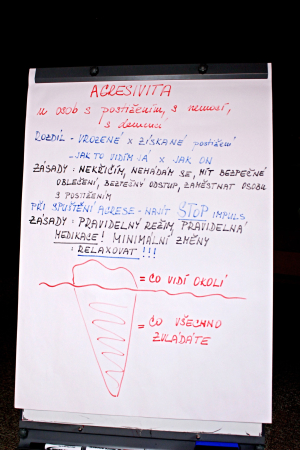 AGRESIVITA
u osob s postižením, s nemocí,
s demencí
ROZDÍL - VROZENÉ X ZÍSKANÉ postižení
- JAK TO VIDÍM JÁ X JAK ON
ZÁSADY: NEKŘIČÍM, NEHÁDÁM SE, MÍT BEZPEČNÉ
OBLEČENÍ, BEZPEČNÝ ODSTUP, ZAMĚSTNAT OSOBU
S POSTIŽENÍM
PŘI SPUŠTĚNÍ AGRESE - NAJÍT STOP IMPULS
ZÁSADY: PRAVIDELNÝ REŽIM, PRAVIDELNÁ
MEDIKACE! MINIMÁLNÍ ZMĚNY
: RELAXOVAT!!!
= CO VIDÍ OKOLÍ
= CO VŠECHNO
ZVLÁDÁTE